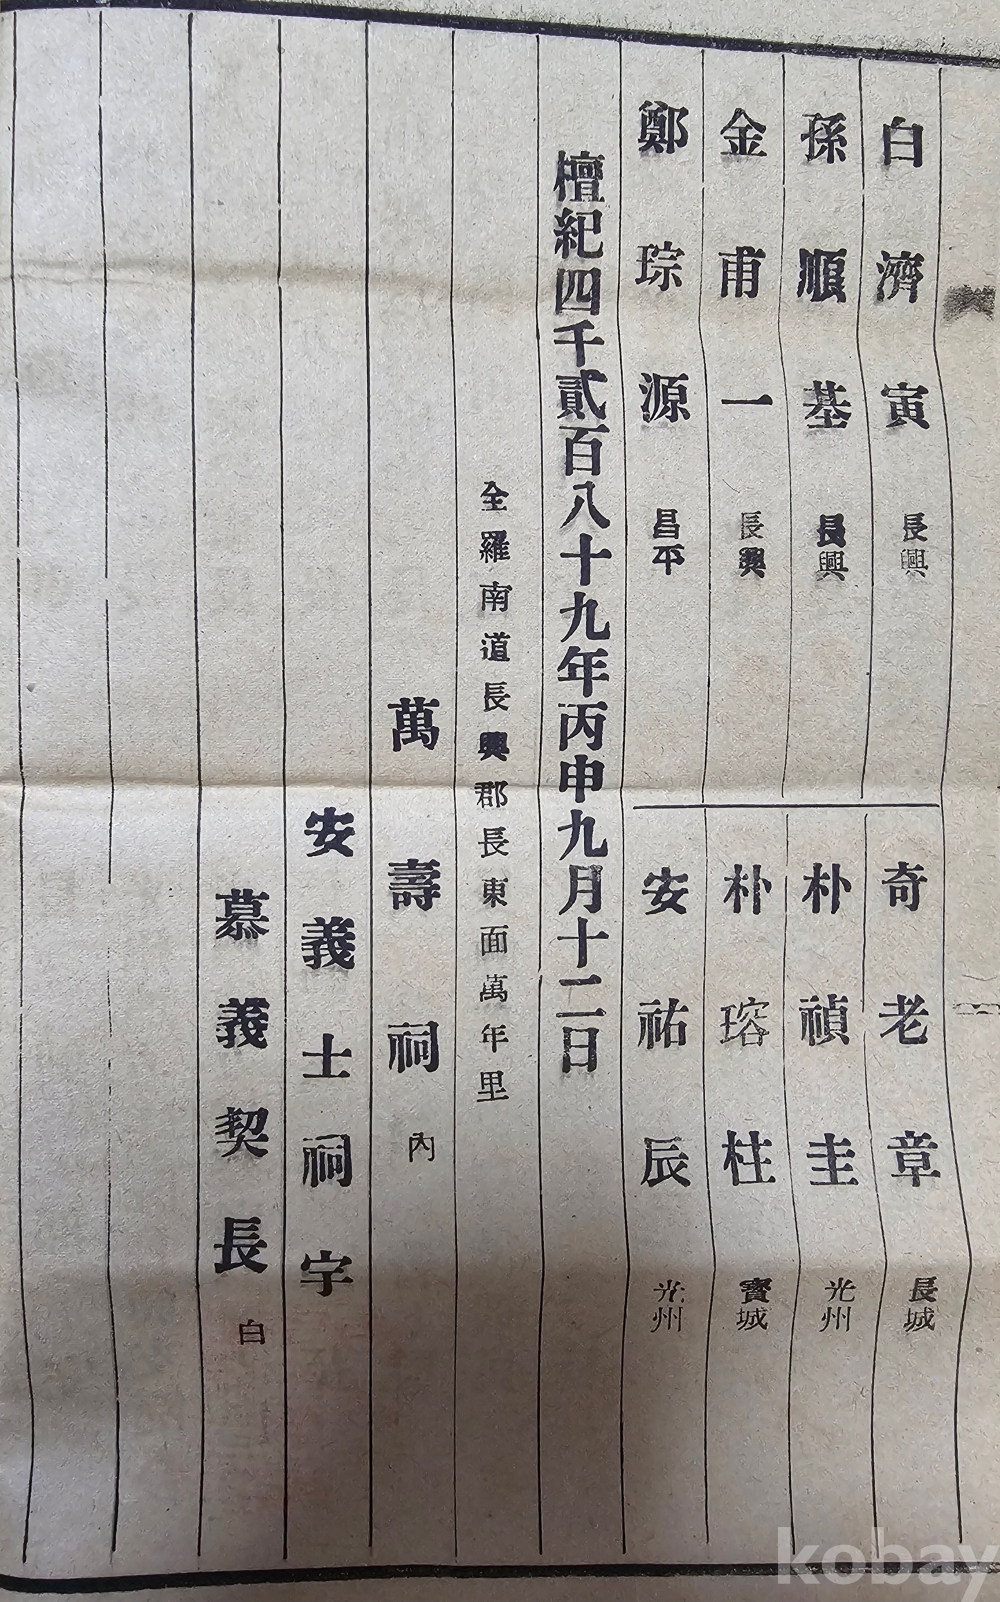 白濟寅 長興
孫順基 長興
金甫一 長興
鄭琮源 昌平
奇老章 長城
朴禎圭 光州
朴瑢柱 寶城
安祐辰 光州
檀紀四千貳百八十九年丙申九月十二日
全羅南道長興郡長東面萬年里
萬壽祠內
安義士祠宇
慕義契長 白
kobay